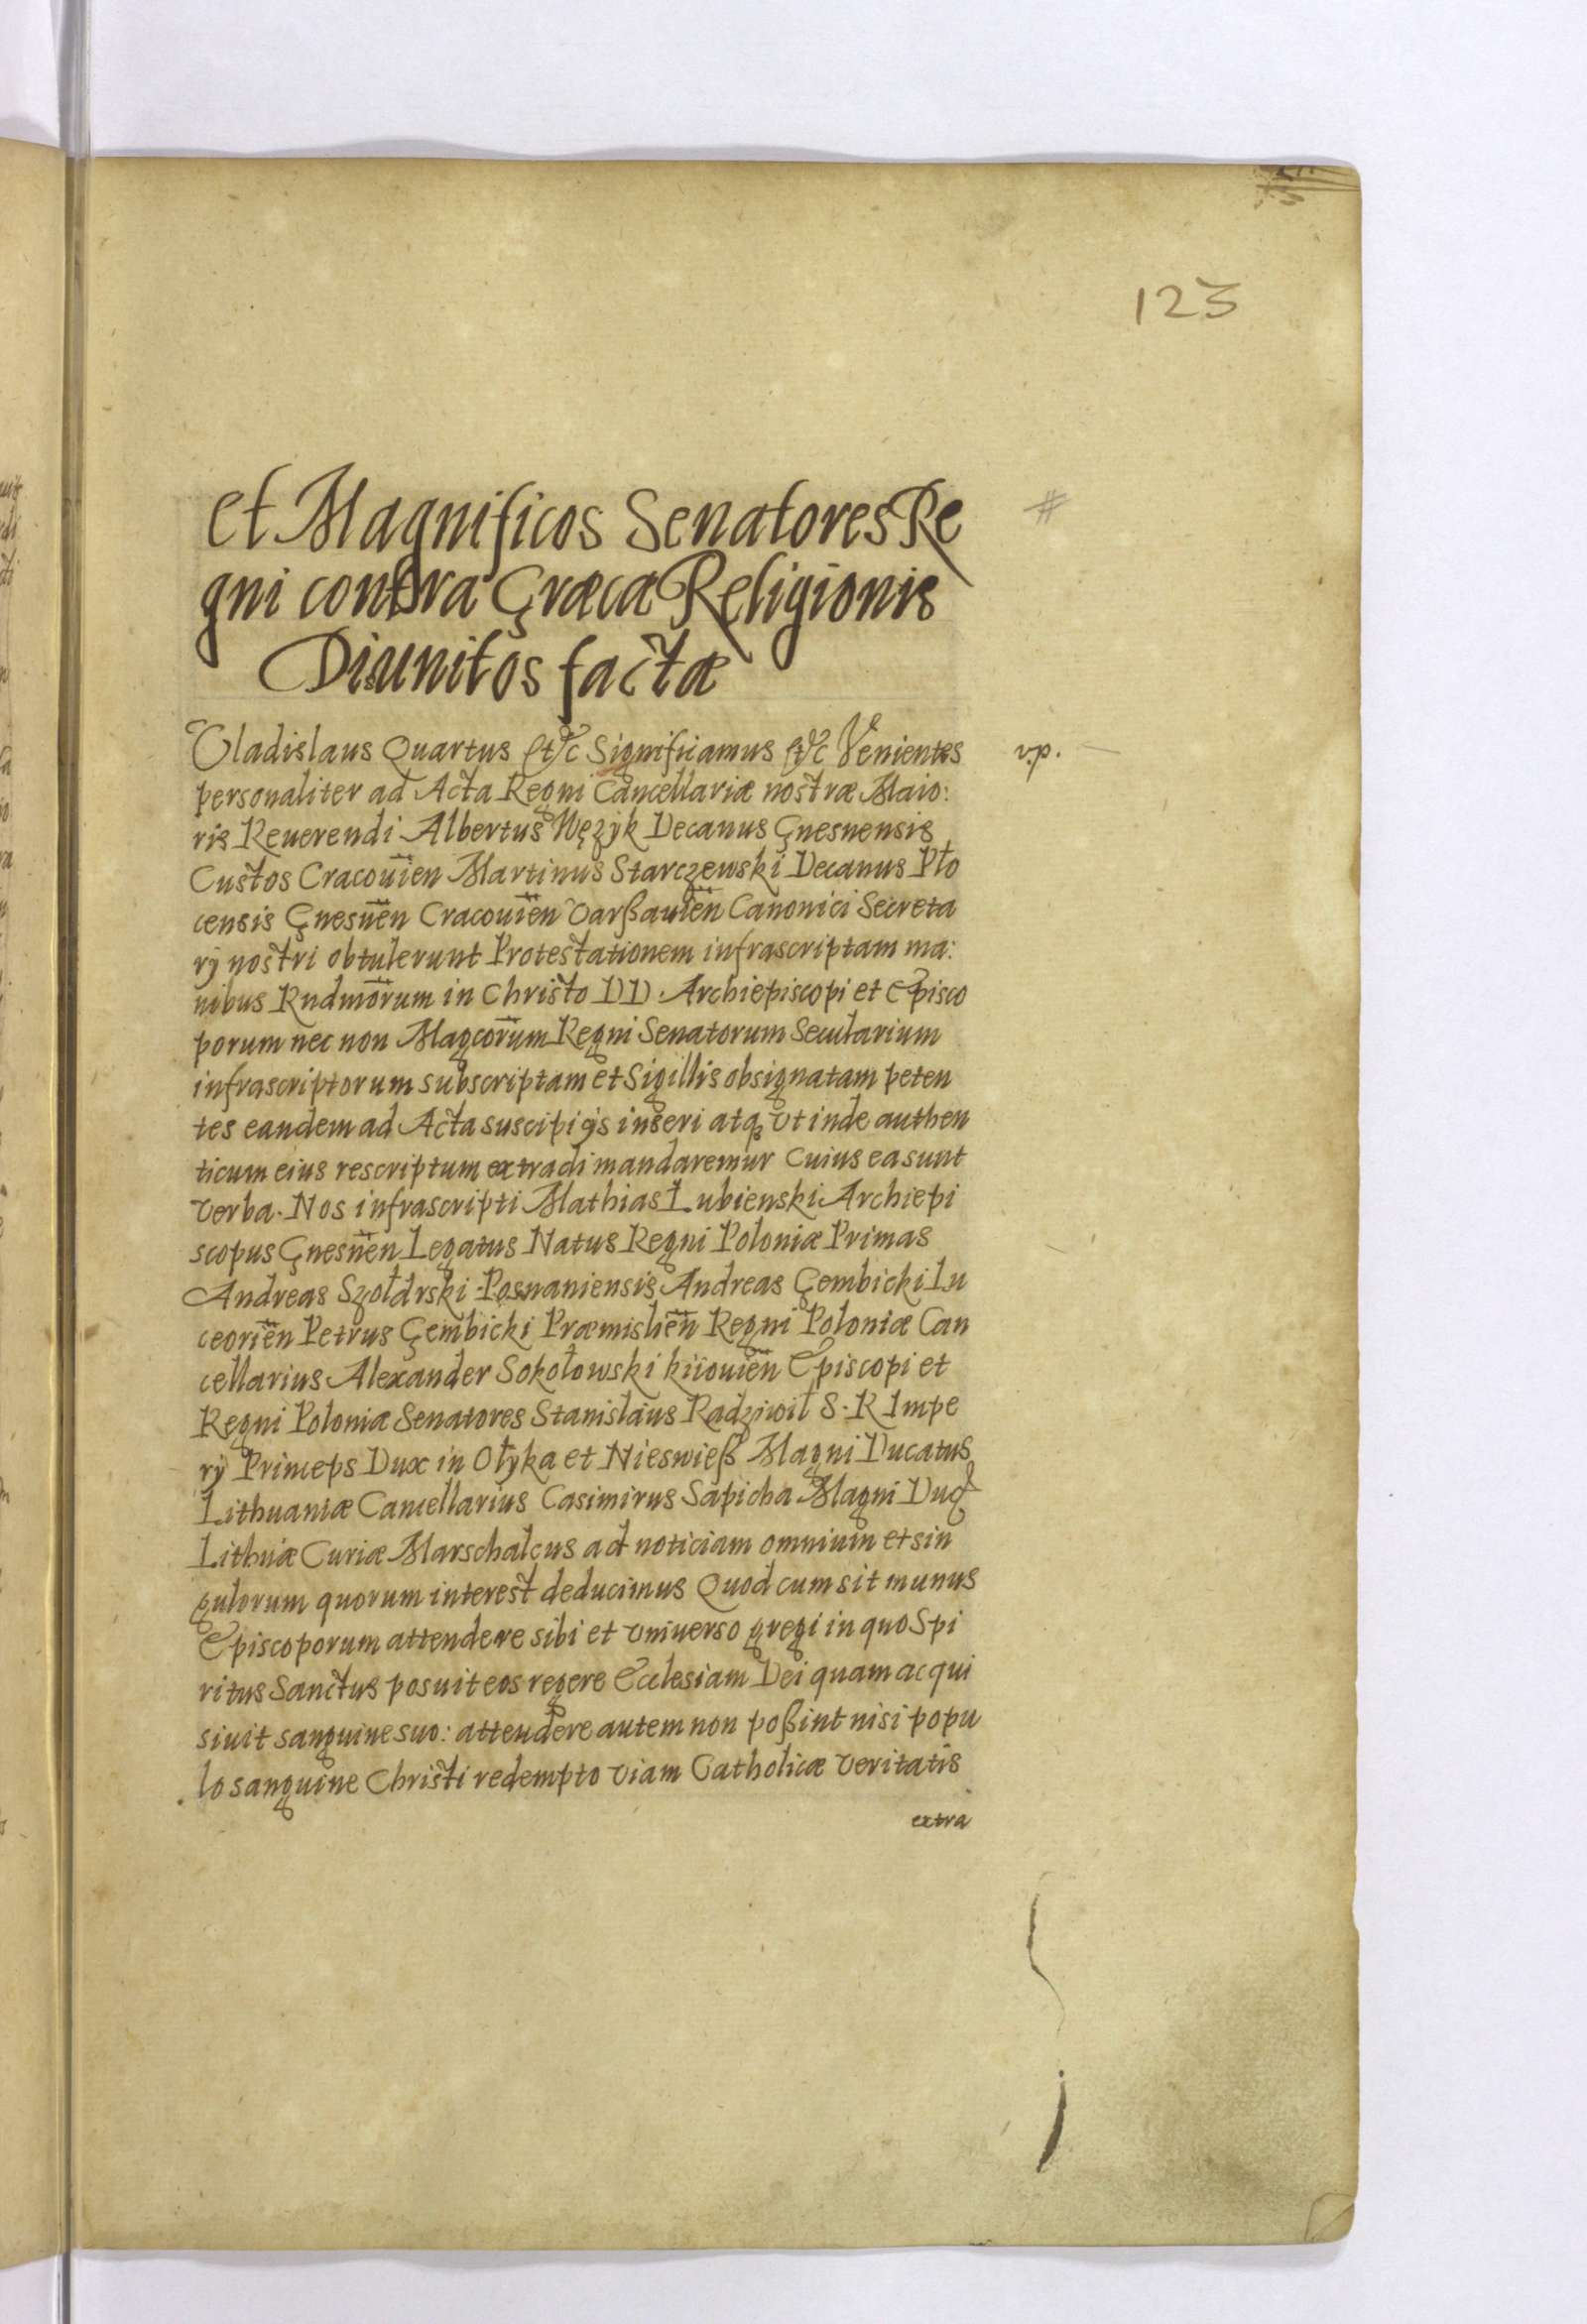 123
Et Magnificos Senatores Re #
gni contra Græca Religionis
Disunitos factæ
Vladislaus Quartus Etc Significamus Etc Venientes v.p.
personaliter ad Acta Regni Cancellariæ nostræ Maio:
ris Reuerendi Albertus Węzyk Decanus Gnesnensis
Custos Cracouien Martinus Starczewski Decanus Pło
censis Gnesnen Cracouien Varßauien Canonici Secreta
rÿ nostri obtulerunt Protestationem infrascriptam ma:
nibus Rndmorum in Christo DD. Archiepiscopi et Episco
porum nec non Magcorum Regni Senatorum Secularium
infrascriptorum subscriptam et Sigillis obsignatam peten
tes eandem ad Acta suscipi ijs inseri atq vt inde authen
ticum eius rescriptum extradi mandaremur Cuius ea sunt
verba. Nos infrascripti Mathias Łubienski Archiepi
scopus Gnesnen Legatus Natus Regni Poloniæ Primas
Andreas Szołdrski Posnaniensis Andreas Gembicki Lu
ceorien Petrus Gembicki Præmislien Regni Poloniæ Can
cellarius Alexander Sokołowski kiiouien Episcopi et
Regni Poloniæ Senatores Stanislaus Radziwił S. R Impe
rÿ Princeps Dux in Ołyka et Nieswieß Magni Ducatus
Lithuaniæ Cancellarius Casimirus Sapieha Magni Duc
Lithuiæ Curiæ Marschalcus ad noticiam omnium et sin
gulorum quorum interest deducimus Quod cum sit munus
Episcoporum attendere sibi et vniuerso gregi in quo Spi
ritus Sanctus posuit eos regere Ecclesiam Dei quam acqui
siuit sanguine suo: attendere autem non poßint nisi popu
lo sanguine Christi redempto viam Catholicæ veritatis
extra